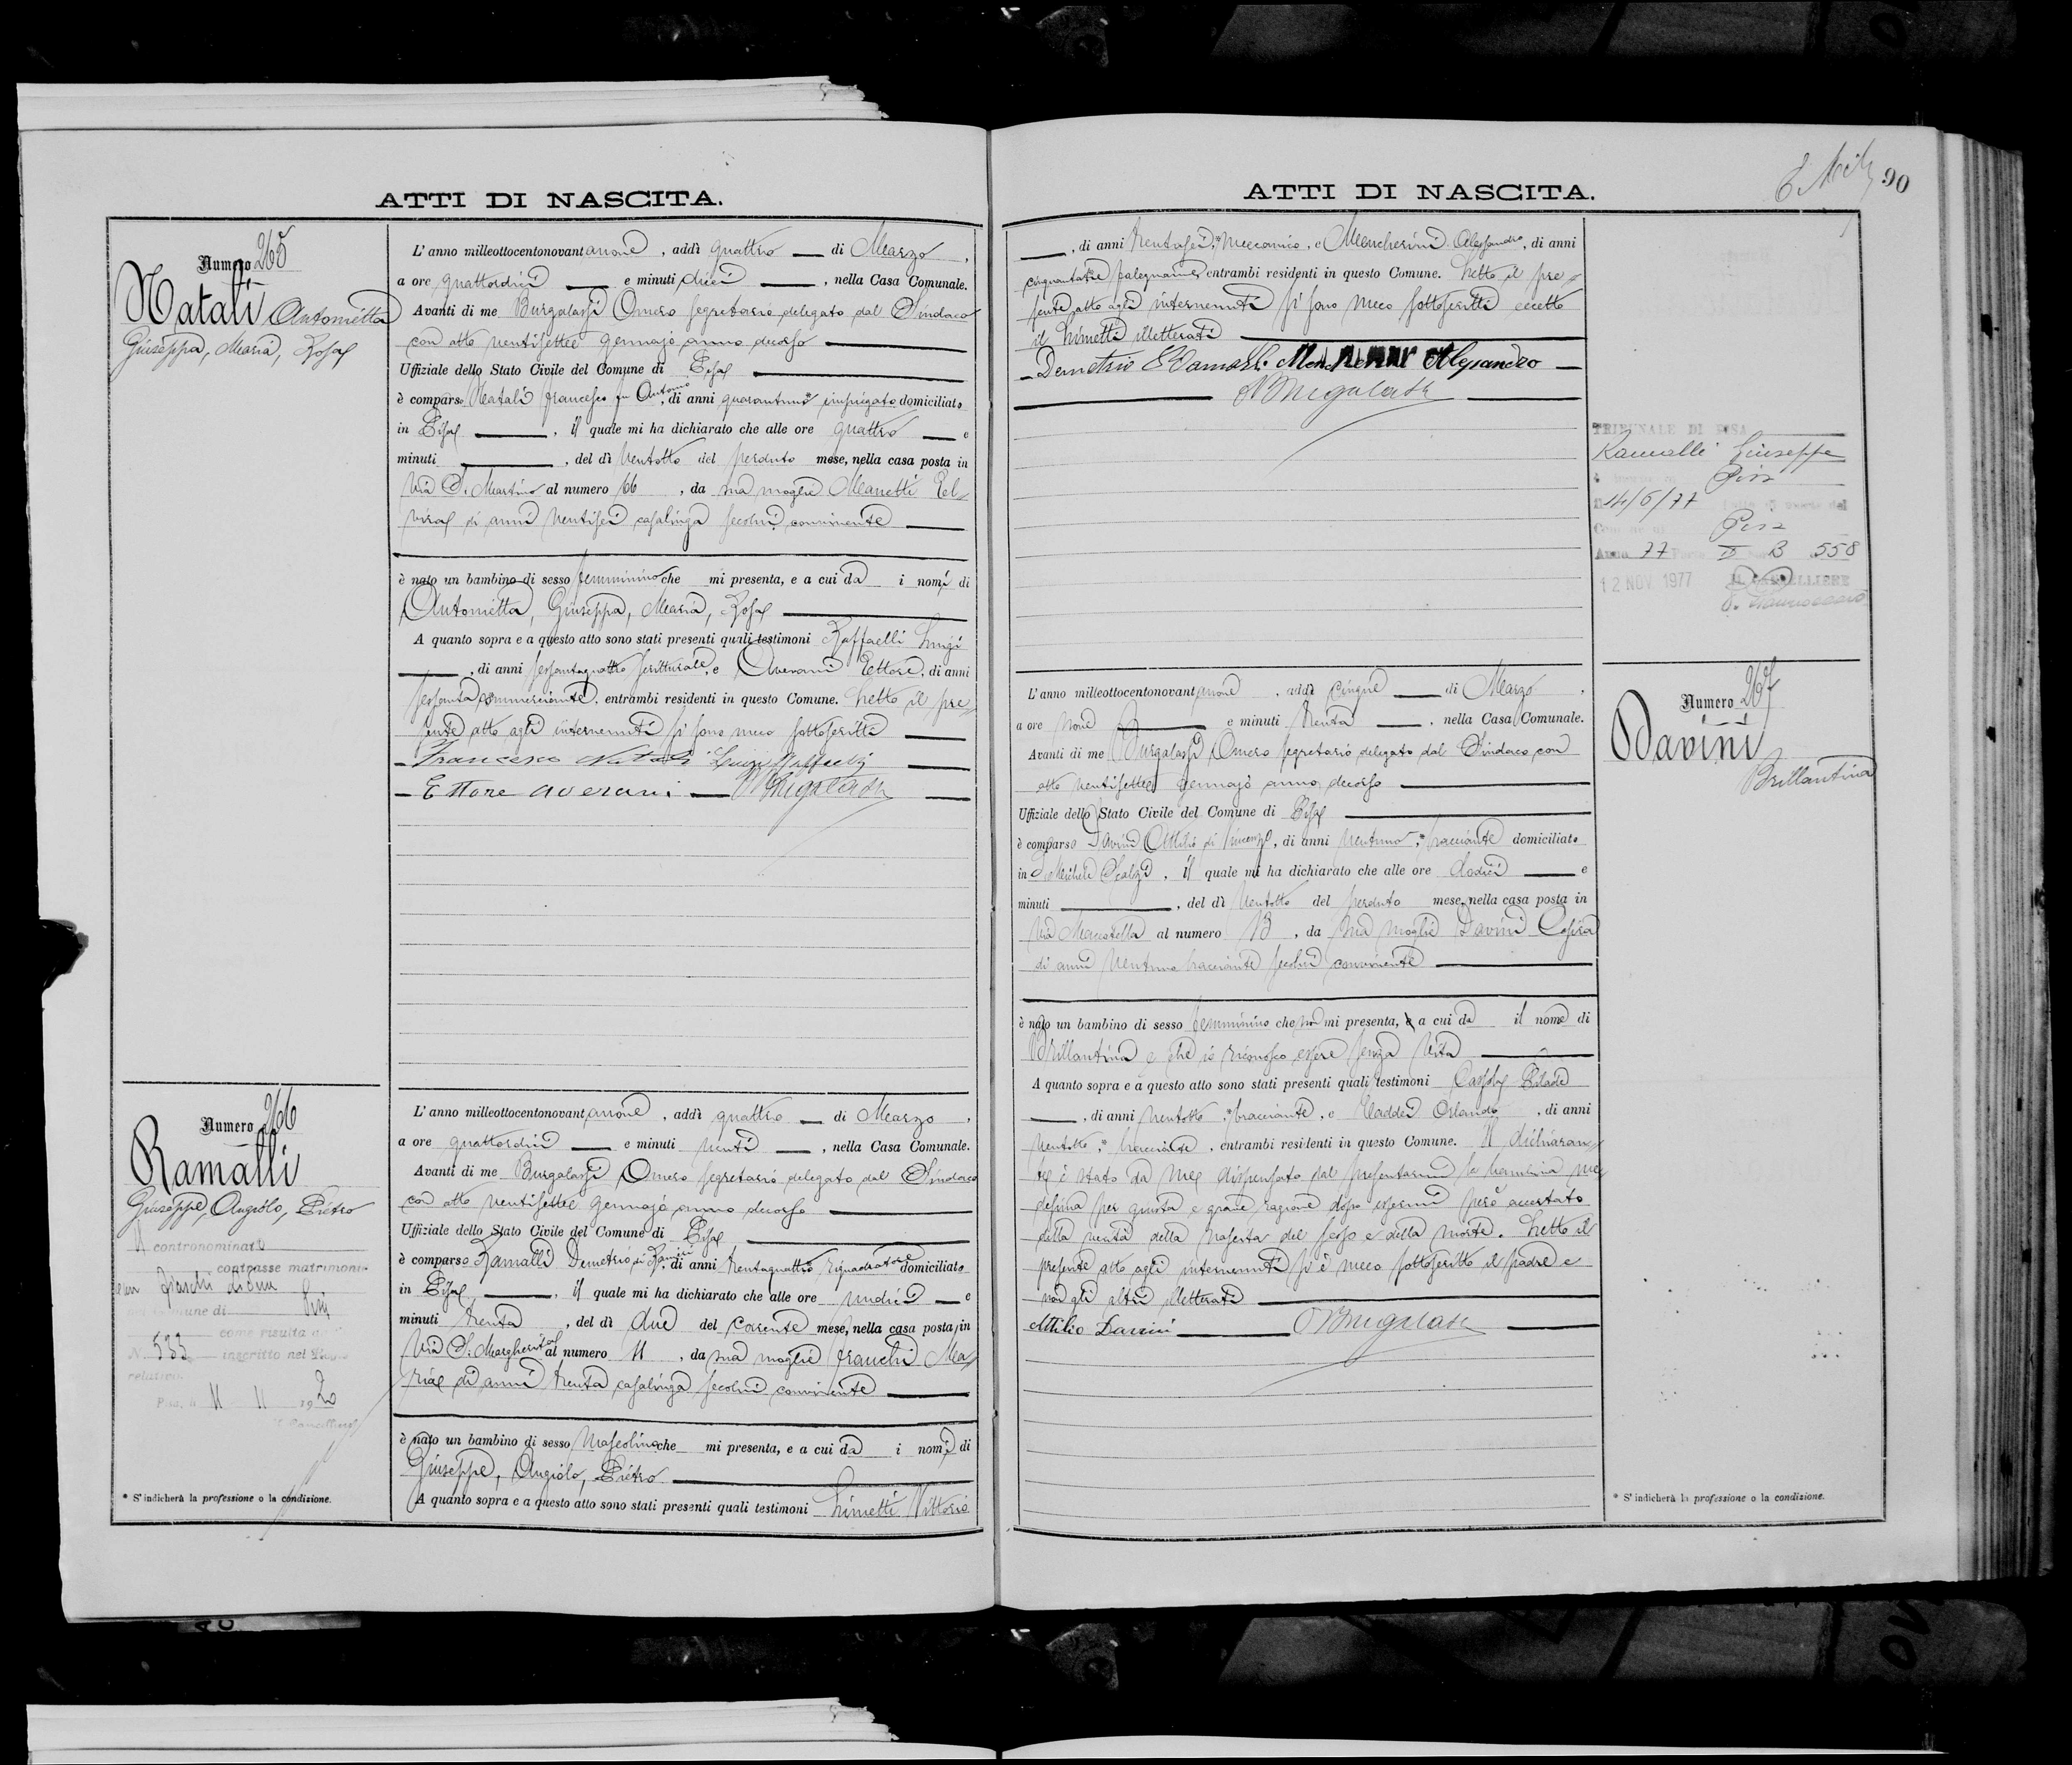 ATTI DI NASCITA.
Numero 265
Natali Antonietta
Giuseppa, Maria, Rosa
L'anno milleottocentonovantanove, addì quattro di Marzo,
a ore quattordici e minuti dieci, nella Casa Comunale.
Avanti di me Burgalassi Omero segretario delegato dal Sindaco
con atto ventisette gennajo anno decorso
Uffiziale dello Stato Civile del Comune di Pisa
è comparso Natali Francesco fu Antonio, di anni quarantuno impiegato domiciliato
in Pisa, il quale mi ha dichiarato che alle ore quattro e
minuti , del dì ventotto del perduto mese, nella casa posta in
Via S. Martino al numero 66, da sua moglie Manetti El-
vira di anni ventisei casalinga secolui convivente
è nato un bambino di sesso femminino che mi presenta, e a cui da i nomi di
Antonietta, Giuseppa, Maria, Rosa
A quanto sopra e a questo atto sono stati presenti quali testimoni Raffaelli Luigi
, di anni sessantaquattro scritturale, e Averani Ettore, di anni
sessanta commerciante, entrambi residenti in questo Comune. Letto il pre-
sente atto agli intervenuti si sono meco sottoscritti
Francesco Natali Luigi Raffaelli
Ettore Averani OBurgalassi
Numero 266
Ramalli
Giuseppe, Angiolo, Pietro
Il contronominato
contrasse matrimonio
con
comune di Pisa
come risulta
N. 533 inscritto nel
relativo
Pisa, li 11 11 1920
Il Cancelliere
* S'indicherà la professione o la condizione.
L'anno milleottocentonovantanove, addì quattro di Marzo,
a ore quattordici e minuti venti, nella Casa Comunale.
Avanti di me Burgalassi Omero segretario delegato dal Sindaco
con atto ventisette gennajo anno decorso
Uffiziale dello Stato Civile del Comune di Pisa
è comparso Ramalli Demetrio di, di anni trentaquattro, riquadratore domiciliato
in Pisa, il quale mi ha dichiarato che alle ore undici e
minuti trenta, del dì due del corrente mese, nella casa posta in
Via S. Margherita al numero 11, da sua moglie Franchi Ma-
ria di anni trenta casalinga secolui convivente
è nato un bambino di sesso mascolino che mi presenta, e a cui da i nomi di
Giuseppe, Angiolo, Pietro
A quanto sopra e a questo atto sono stati presenti quali testimoni Limetti Vittorio
ATTI DI NASCITA.
90
, di anni trentasei, * meccanico, e Mencherini Alessandro, di anni
cinquantatre falegname entrambi residenti in questo Comune. Letto il pre-
sente atto agli intervenuti si sono meco sottoscritti eccetto
il Limetti illetterati
Demetrio Ramalli Alessandro
OBurgalassi
TRIBUNALE DI PISA
Ramalli Giuseppe
Pisa
14/6/77
Pisa
Anno 77 II B 558
12 NOV. 1977 IL CANCELLIERE
L'anno milleottocentonovantanove, addì cinque di Marzo,
a ore nove e minuti trenta, nella Casa Comunale.
Avanti di me Burgalassi Omero segretario delegato dal Sindaco con
atto ventisette gennajo anno decorso
Uffiziale dello Stato Civile del Comune di Pisa
è comparso Davini Attilio di Vincenzo, di anni ventuno, * bracciante domiciliato
in S. Michele Scalzi, il quale mi ha dichiarato che alle ore dodici e
minuti , del dì ventotto del perduto mese, nella casa posta in
Via al numero 13, da sua moglie Davini Cesira
di anni ventuno bracciante secolui convivente
è nato un bambino di sesso femminino che non mi presenta, e a cui da il nome di
Brillantina e che io riconosco essere senza vita
A quanto sopra e a questo atto sono stati presenti quali testimoni Pilade
, di anni ventotto, * bracciante, e Taddei Orlando, di anni
ventotto, * bracciante, entrambi residenti in questo Comune. Il dichiaran-
te è stato da me dispensato dal presentarmi la bambina me-
desima per giusta e grave ragione dopo essermi però accertato
della verità della nascita del sesso e della morte. Letto il
presente atto agli intervenuti si è meco sottoscritto il padre e
non gli altri illetterati
Attilio Davini OBurgalassi
Numero 267
Davini
Brillantina
* S'indicherà la professione o la condizione.